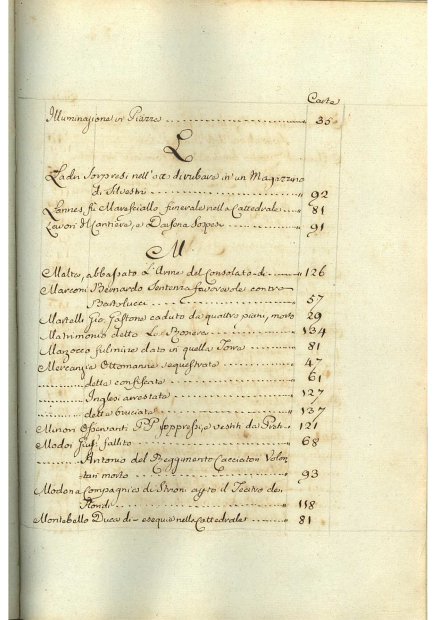 Carte
Illuminazione in Piazza 35
L
Ladri sorpresi nell'atto di rubare in un Magazzino
di Silvestri 92
Lannes fu Maresciallo funerale nella Cattedrale 81
Lavori di Cantiere, e Darsena sospesi 91
M
Malta, abbassato l'Arme del Consolato di 126
Marconi Bernardo sentenza favorevole contro
Bartolucci 57
Martelli Gio. Gastone caduto da quattro piani, morto 29
Matrimonio detto La Boneva 134
Marzocco fulmine dato in quella Torre 81
Mercanzie Ottomanne sequestrate 47
dette confiscate 61
Inglesi arrestate 127
dette bruciate 137
Minori Osservanti PP. soppressi, e vestiti da Preti 121
Modoi Gius. fallito 68
Antonio del Reggimento Cacciatori Volon-
tari morto 93
Modona Compagnia di Stroni agito il Teatro de
Floridi 118
Montebello Duca di esequie nella Cattedrale 81